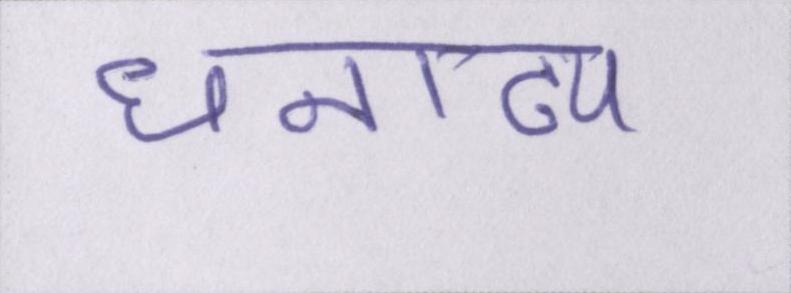 धनाढ्य